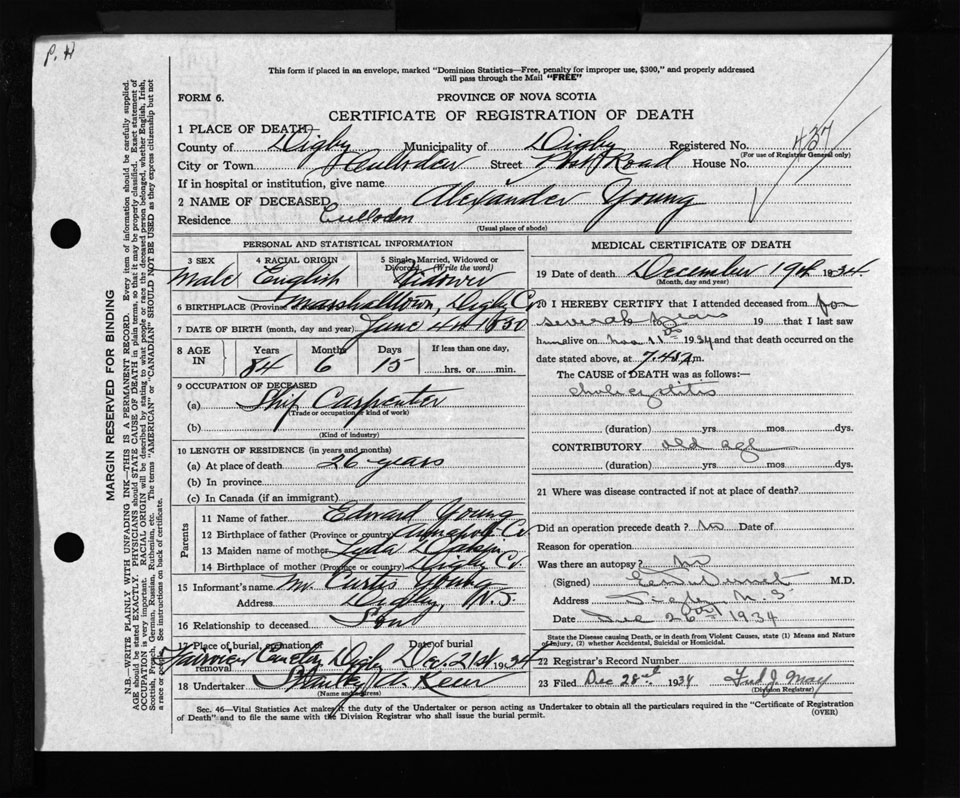 P. H
This form if placed in an envelope, marked "Dominion Statistics—Free, penalty for improper use, $300," and properly addressed
will pass through the Mail "FREE"
FORM 6.
PROVINCE OF NOVA SCOTIA
CERTIFICATE OF REGISTRATION OF DEATH
1 PLACE OF DEATH
County of Digby Municipality of Digby Registered No. 437
(For use of Registrar General only)
City or Town Culloden Street Road House No.
If in hospital or institution, give name
2 NAME OF DECEASED Alexander Young
Residence Culloden
(Usual place of abode)
PERSONAL AND STATISTICAL INFORMATION
3 SEX 4 RACIAL ORIGIN 5 Single, Married, Widowed or Divorced (Write the word)
Male English Widower
6 BIRTHPLACE (Province or Marshalltown, Digby Co
7 DATE OF BIRTH (month, day and year) June 4th 1850
8 AGE IN Years Months Days If less than one day,
84 6 15 hrs. or min.
9 OCCUPATION OF DECEASED
(a) Ship Carpenter
(Trade or occupation or kind of work)
(b)
(Kind of industry)
10 LENGTH OF RESIDENCE (in years and months)
(a) At place of death 26 years
(b) In province
(c) In Canada (if an immigrant)
Parents
11 Name of father Edward Young
12 Birthplace of father (Province or country) Annapolis Co
13 Maiden name of mother Lyda
14 Birthplace of mother (Province or country) Digby Co.
15 Informant's name Mr. Curtis Young
Address Digby, N.S
16 Relationship to deceased Son
17 Place of burial, cremation or removal Date of burial
Cemetery Digby Dec. 21st 1934
18 Undertaker Stanley A.
(Name and address)
MEDICAL CERTIFICATE OF DEATH
19 Date of death December 19th 1934
(Month, day and year)
20 I HEREBY CERTIFY that I attended deceased from for
several years 19 that I last saw
h alive on Nov. 11th 1934 and that death occurred on the
date stated above, at 7.45 m.
The CAUSE of DEATH was as follows:
cholecystitis
(duration) yrs mos dys.
CONTRIBUTORY old age
(duration) yrs mos dys.
21 Where was disease contracted if not at place of death?
Did an operation precede death? no Date of
Reason for operation
Was there an autopsy? no
(Signed) M.D.
Address Digby N.S
Date Dec 26th 1934
State the Disease causing Death, or in death from Violent Causes, state (1) Means and Nature
of Injury, (2) whether Accidental, Suicidal or Homicidal.
22 Registrar's Record Number
23 Filed Dec 28th 1934 Fred J. May
(Division Registrar)
Sec. 46—Vital Statistics Act makes it the duty of the Undertaker or person acting as Undertaker to obtain all the particulars required in the "Certificate of Registration
of Death" and to file the same with the Division Registrar who shall issue the burial permit.
(OVER)
MARGIN RESERVED FOR BINDING
N.B.—WRITE PLAINLY WITH UNFADING INK—THIS IS A PERMANENT RECORD. Every item of information should be carefully supplied.
AGE should be stated EXACTLY. PHYSICIANS should STATE CAUSE OF DEATH in plain terms, so that it may be properly classified. Exact statement of
OCCUPATION is very important. RACIAL ORIGIN will be described by stating to what people or race the deceased person belonged, whether English, Irish,
Scottish, French, German, Russian, Ruthenian, etc. The terms "AMERICAN" or "CANADIAN" SHOULD NOT BE USED as they express citizenship but not
a race or people. See instructions on back of certificate.